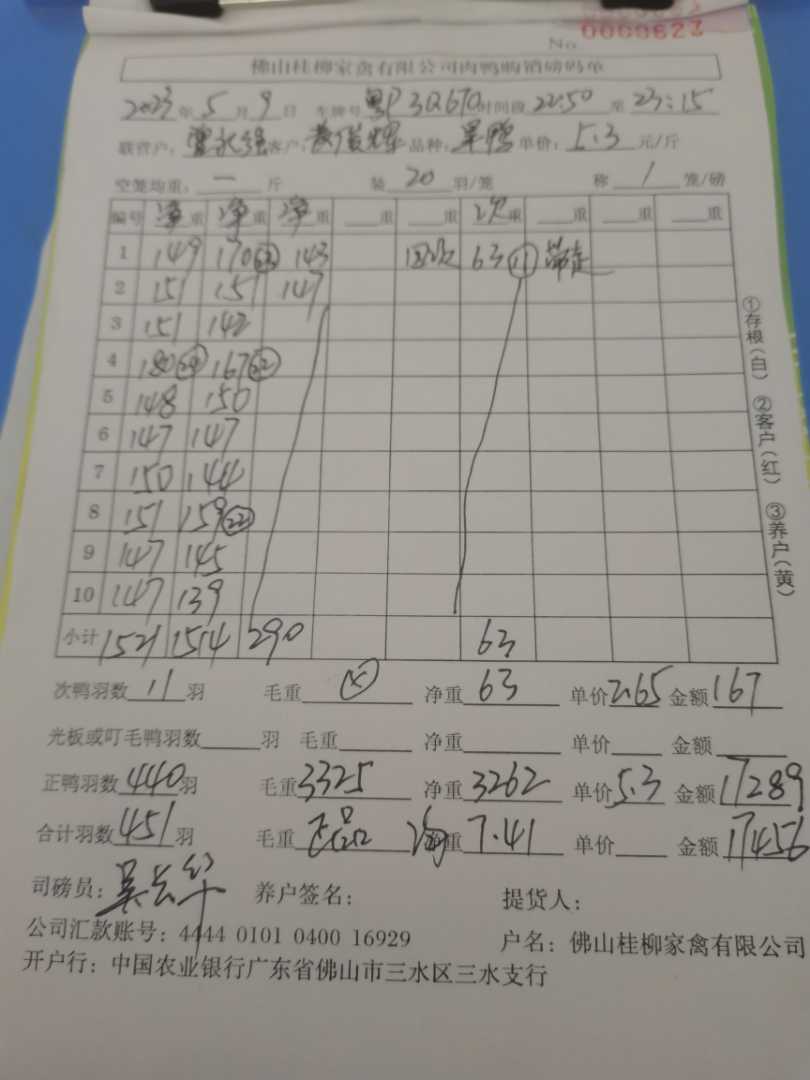 No 0000623
佛山桂柳家禽有限公司肉鸭购销磅码单
2023年 5 月 9 日 车牌号 粤P3Q670 时间段 22:50 至 23:15
联营户: 客户: 品种: 单价: 5.3 元/斤
空笼均重: 一 斤 装 20 羽/笼 称 1 笼/磅
编号 净重 净重 净重 重 重 次重 重 重 重
1 149 170 143 63 11 带走
2 151 151 147
3 151 142
4 180 24 167 22
5 148 150
6 147 147
7 150 144
8 151 159 22
9 147 145
10 147 139
小计 1521 1514 290 63
次鸭羽数 11 羽 毛重 净重 63 单价 2.65 金额 167
光板或叮毛鸭羽数 羽 毛重 净重 单价 金额
正鸭羽数 440 羽 毛重 3325 净重 3262 单价 5.3 金额 17289
合计羽数 451 羽 毛重 净重 7.41 单价 金额 17456
司磅员: 养户签名: 提货人:
公司汇款账号: 4444 0101 0400 16929 户名: 佛山桂柳家禽有限公司
开户行: 中国农业银行广东省佛山市三水区三水支行
①存根(白) ②客户(红) ③养户(黄)